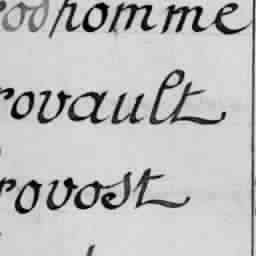 rodhomme
rovault
rovost